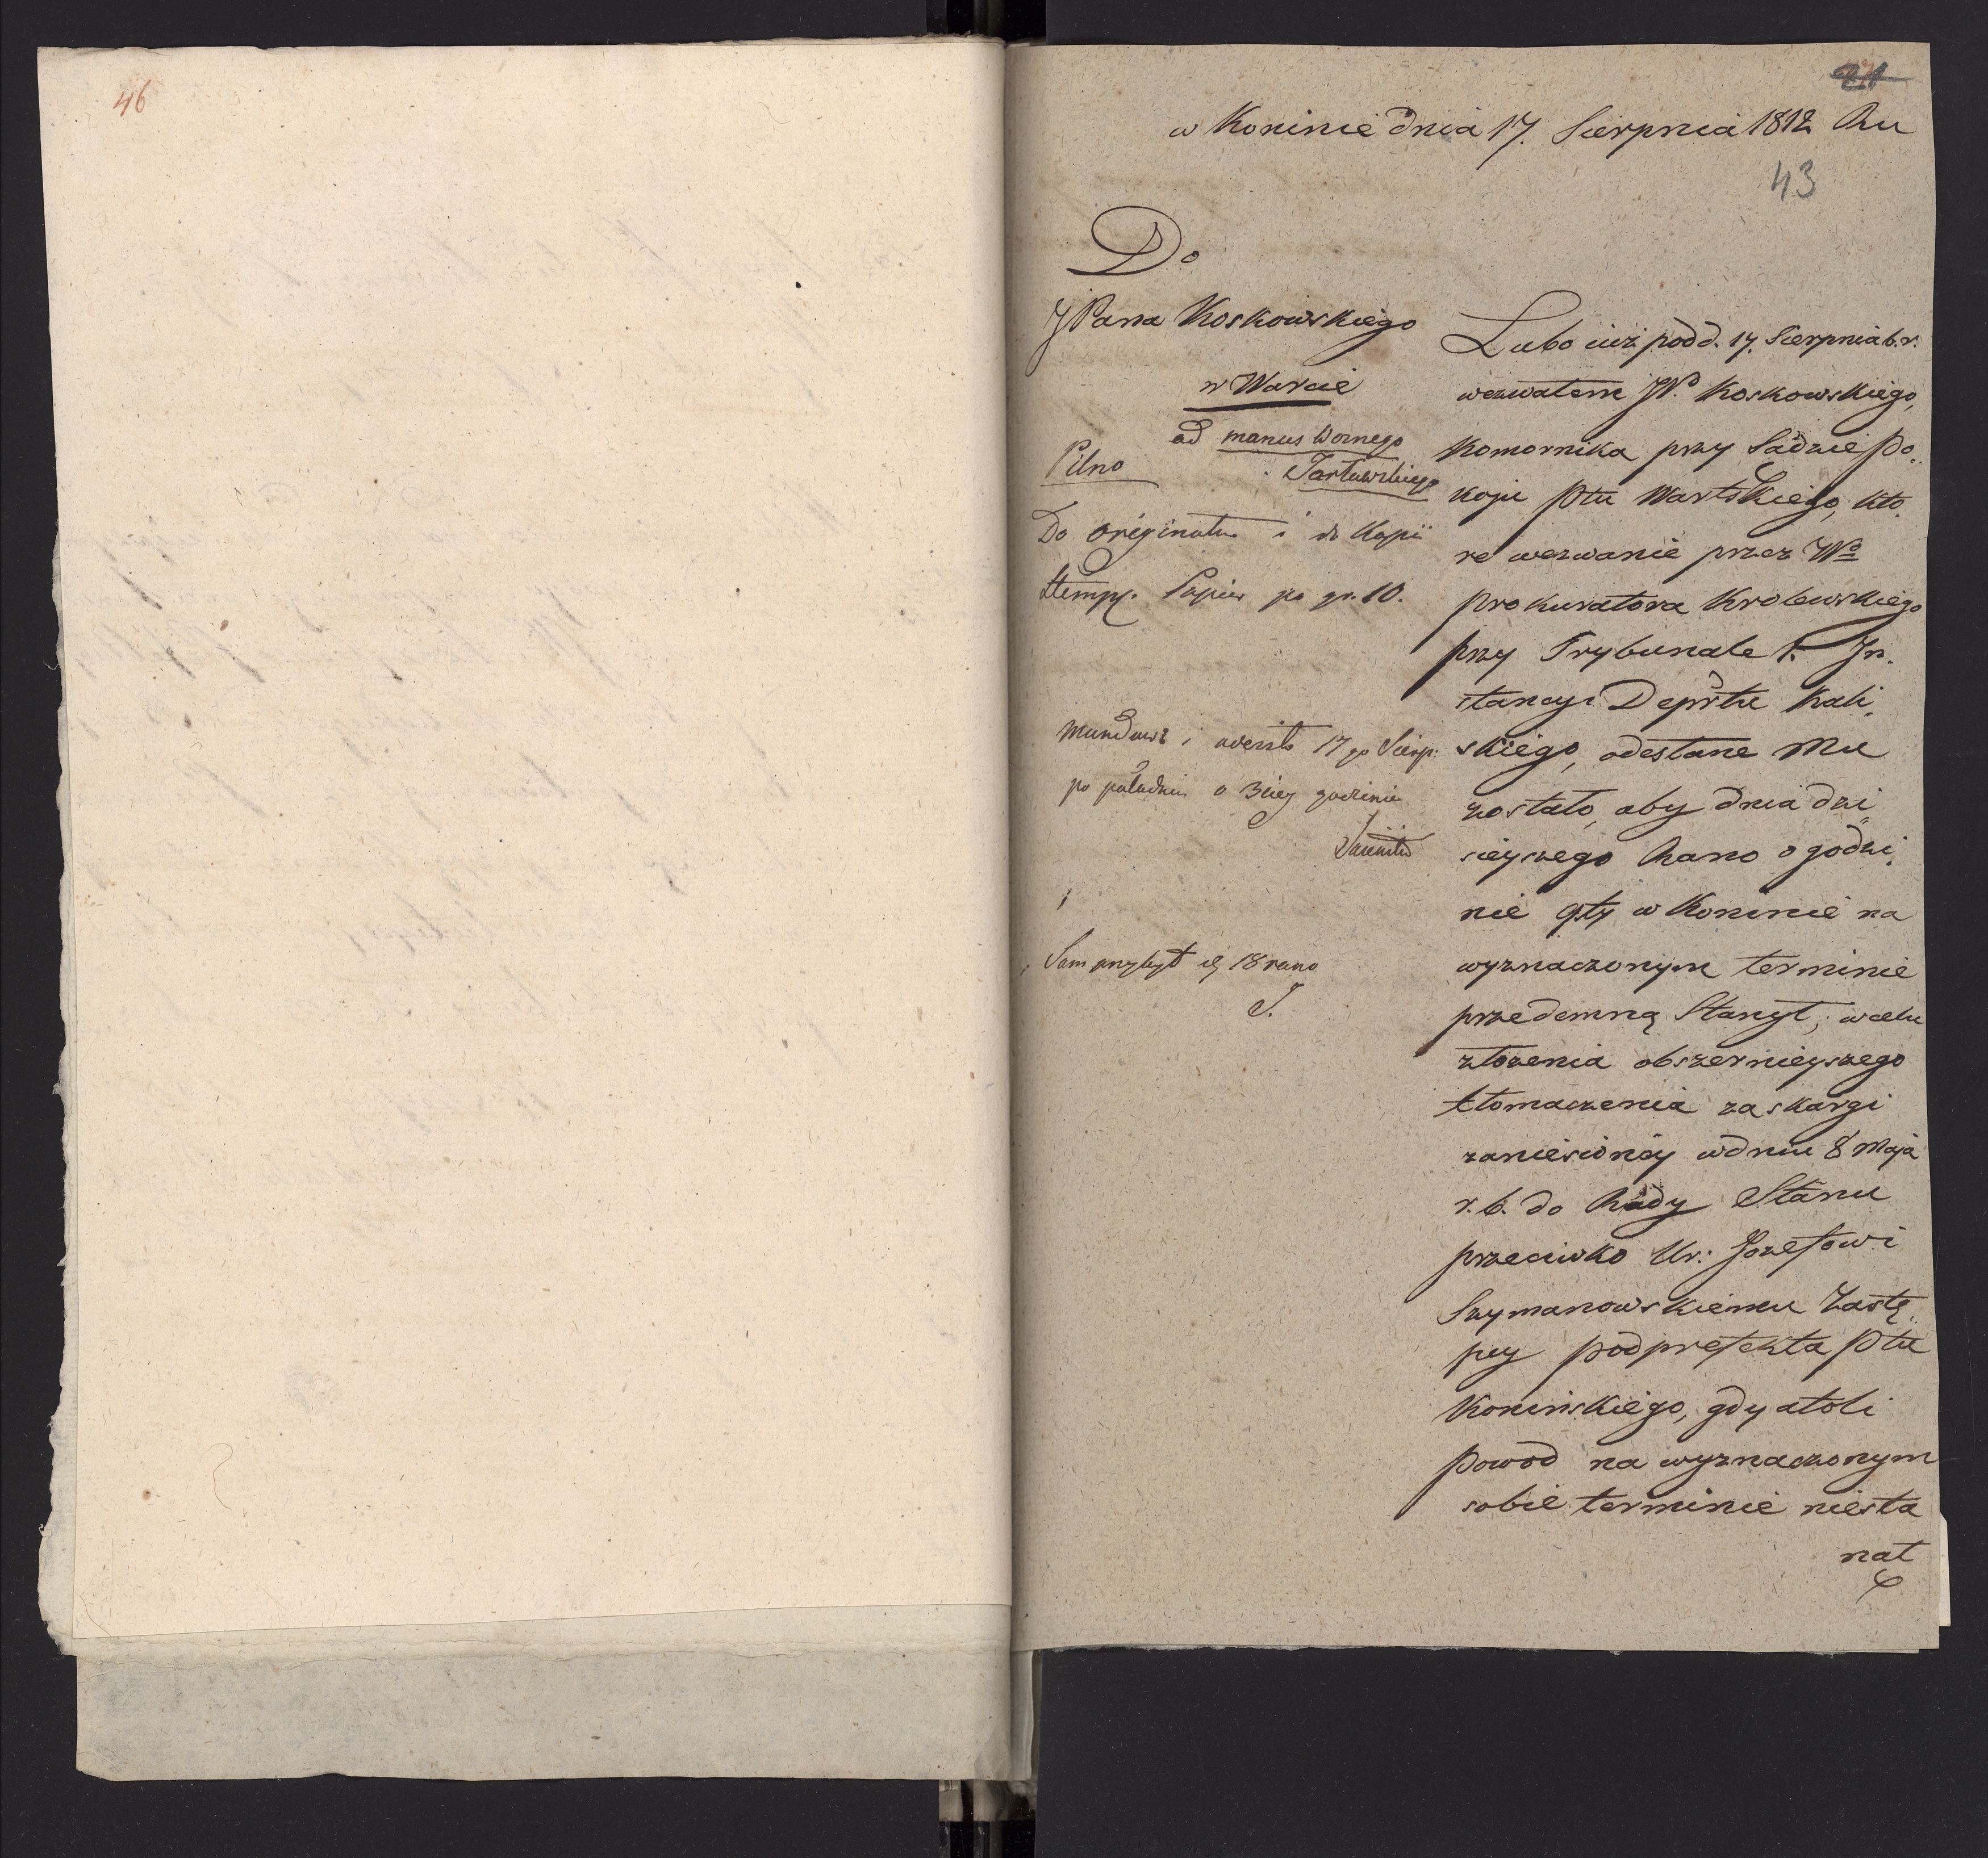 46
w Koninie dnia 17. Sierpnia 1812 Ru
43
Do
JPana Koskowskiego
w Warcie
ad manus Woznego
Pilno
Do originału i do Kopii
Stempl. Papier po gr. 10.
po południu o 3ciey godzinie
Sam przybył d. 18 rano
S.
Lubo iuż pod d. 17. Sierpnia b. r.
wezwałem JP. Koskowskiego,
Komornika przy Sądzie Po„
koju Ptu Wartskiego, kto„
re wezwanie przez WP
Prokuratora Krolewskiego
przy Trybunale 1. In„
stancyi Deprtu Kali„
skiego, odesłane Mu
zostało, aby dnia dzi„
sieyszego Rano o godzi„
nie 9ty w Koninie na
wyznaczonym terminie
przedemną Stanął, w celu
złożenia obszernieyszego
tłomaczenia zaskargi
zaniesioney w dniu 8 Maja
r. b. do Rady Stanu
przeciwko Ur: Jozefowi
Szymanowskiemu Zastę„
pcy Podprefekta Ptu
Koninskiego, gdy atoli
Powod na wyznaczonym
sobie terminie niesta
nął